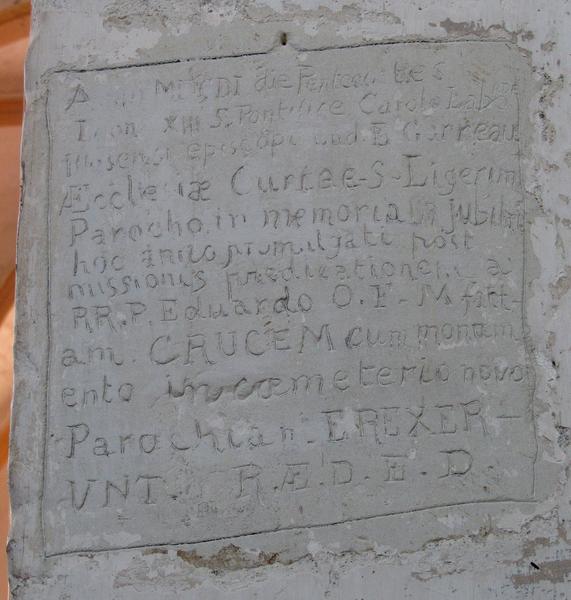 A MCMDI die Pentecostes
Leon XIII S. Pontifice Carolo Labo
episcopi Lud. E Garreau
Ecclesiæ Curtae-S-Ligerim
Parocho, in memoriam jubilæi
hoc anno promulgati post
missionis predicationem a
RR.P. Eduardo O.F.M fact-
am. CRUCEM cum monum
ento in cœmeterio novo
Parochiani EREXER-
UNT. R.Æ.D.E.D.